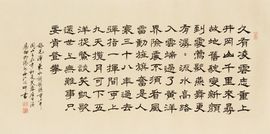 久有凌雲志重上
井岡山千里來尋
故地舊貌變新顏
到處鶯歌燕舞更
有潺潺流水高路
入雲端過了黃洋
界險處不須看風
雷動旌旗奮是人
寰三十八年過去
彈指一揮間可上
九天攬月可下五
洋捉鱉談笑凱歌
還世上無難事只
要肯登攀